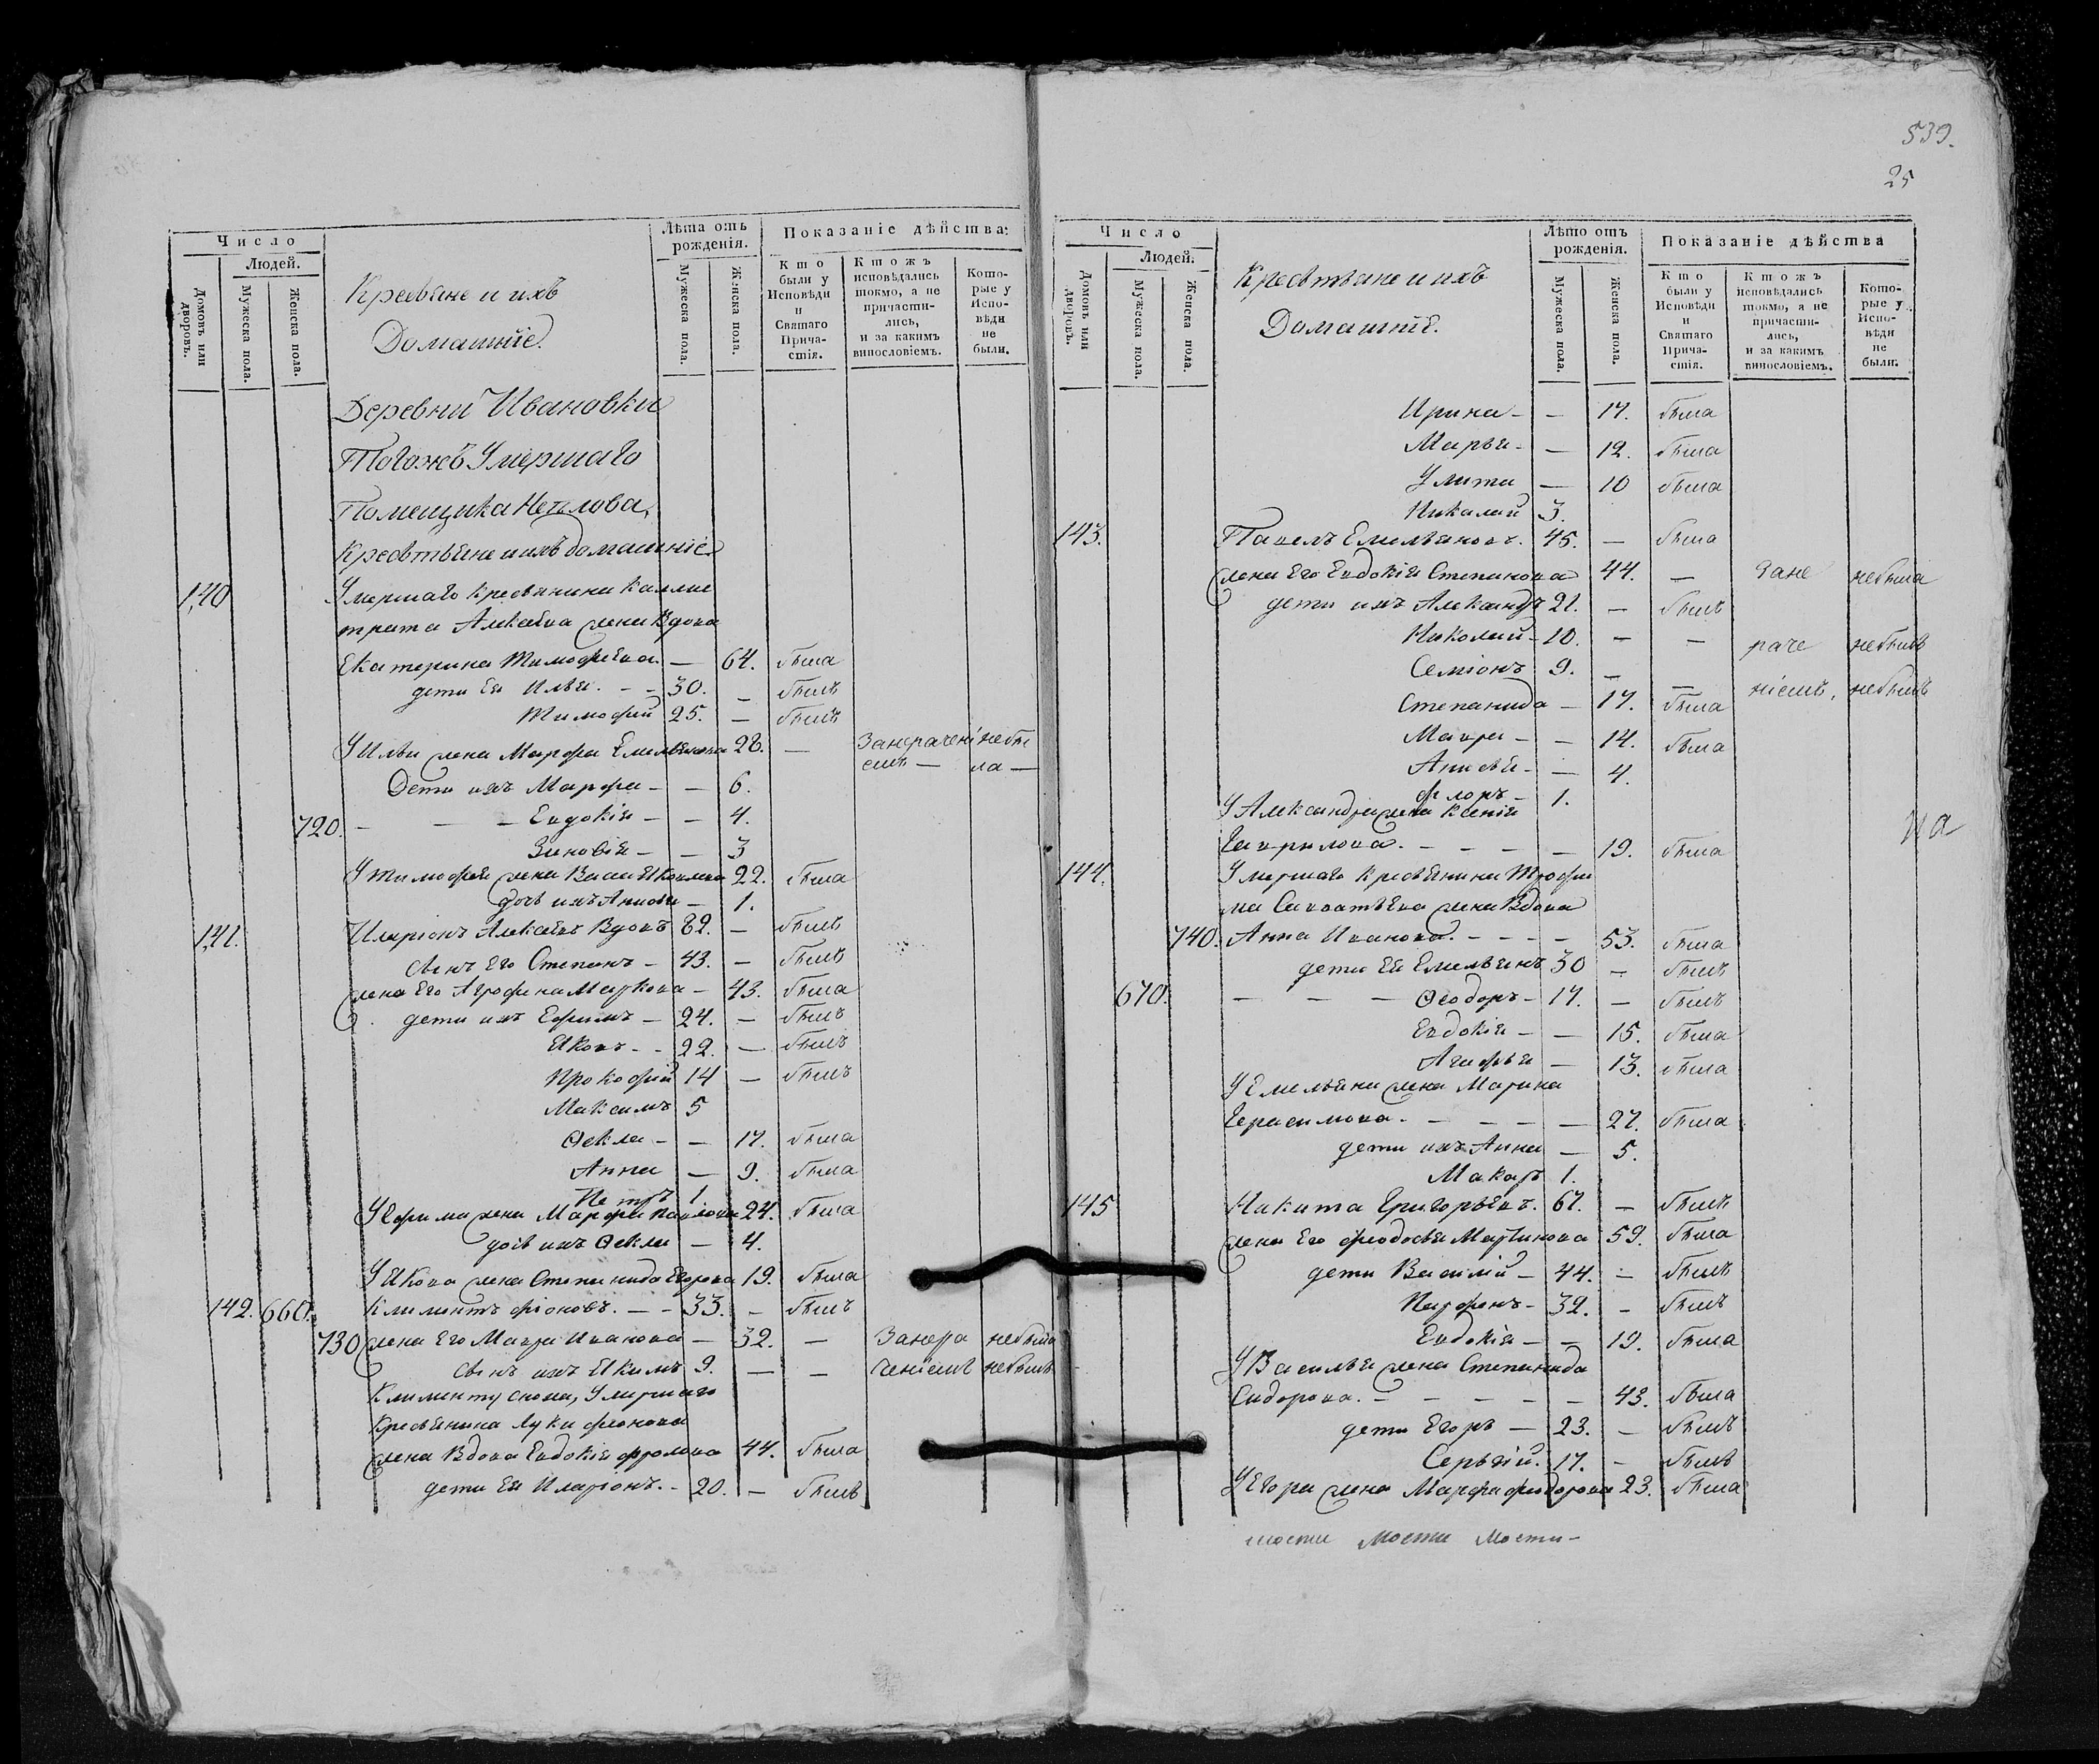 Число
Людей.
Домовъ или дворовъ.
Мужеска пола.
Женска пола.
Кресьяне и ихъ
Домашніе.
Лѣта отъ рожденія.
Мужеска пола.
Женска пола.
Показаніе дѣйства:
Кто были у Исповѣди и Святаго Прича- стія.
Ктожъ исповѣдались токмо, а не причасти- лись, и за какимъ винословіемъ.
Кото- рые у Испо- вѣди не были.
Деревни Ивановки
Тогожъ Умершаго
Помещика
Кресьтьяне и ихъ домашніе
140 Умершаго кресьянина Калис
трата Алексѣева жена Вдова
Екатерина Тимофѣева — 64. была
дети Ея Илья. — 30. — былъ
Тимофей 25. — былъ
У Ильи жена Марфа Емельянова 28. — Занерачені небы
емъ — ла —
Дети ихъ Марфа — — 6.
720. — — Евдокія — — 4.
Зиновія — — 3
У Тимофея жена Васса Яковлева 22. была
дочь ихъ Анисья — 1.
141. Иларіонъ Алексѣевъ Вдовъ 82. — былъ
сынъ Его Степанъ — 43. — былъ
жена Его Агрофина Маркова — 43. была
дети ихъ Ефимъ — 24. — былъ
Яковъ — 22. — былъ
Прокофій 14 — былъ
Максимъ 5
Ѳекла — — 17. была
Анна — 9. была
Петръ 1.
У Ефима жена Марфа Павлова 24. была
дочь ихъ Ѳекла — 4.
У Якова жена Степанида Егорова 19. была
142. 660. Климентъ Фіоновъ. — 33. — былъ
730 жена Его Мавра Иванова — 32. — Занера небыла
сынъ ихъ Якимъ 9. — — ченіемъ небылъ
Клименту сноха, Умершаго
Кресьянина Луки Фіонова
жена Вдова Евдокія Фролова 44. была
дети Ея Иларіонъ. — 20. — былъ
539.
25
Число
Людей.
Домовъ или дворовъ.
Мужеска пола.
Женска пола.
Кресьтьяне и ихъ
Домашніе.
Лѣто отъ рожденія.
Мужеска пола.
Женска пола.
Показаніе дѣйства
Кто были у Исповѣди и Святаго Прича- стія.
Ктожъ исповѣдались токмо, а не причасти- лись, и за какимъ винословіемъ.
Кото- рые у Испо- вѣди не были.
Ирина — — 17. была
Марья — — 12. была
Улита — 10 была
Николай 3.
143. Павелъ Емельяновъ. 45. — была
жена Его Евдокія Степанова 44. — Зане небыла
дети ихъ Александръ 21. — былъ
Николай — 10. — — раче небылъ
Семіонъ 9. — — ніемъ, небылъ
Степанида — 17. была
Мавра — — 14. была
Анисья — — 4.
Флоръ — 1.
У Александра жена Ксенія
Гаврилова. — — — — 19. была
на
144. Умершаго кресьянина Трофи
ма Савватѣева жена Вдова
740. Анна Иванова. — — — — 53. была
дети Ея Емельянъ 30 — былъ
670. — — — Ѳеодоръ — 17. — былъ
Евдокія — — 15. была
Агафья — 13. была
У Емельяна жена Марина
Герасимова. — — — — 27. была
дети ихъ Анна — 5.
Макаръ 1.
145 Никита Григорьевъ. 67. — былъ
жена Его Феодосья Мартинова 59. была
дети Василій — 44. — былъ
Парфенъ — 32. — былъ
Евдокія — — 19. была
У Василья жена Степанида
Сидорова. — — — — — 43. была
дети Егоръ — 23. — былъ
Сергѣй. 17. — былъ
У Егора жена Марфа Фидорова 23. была
мости мости мости —